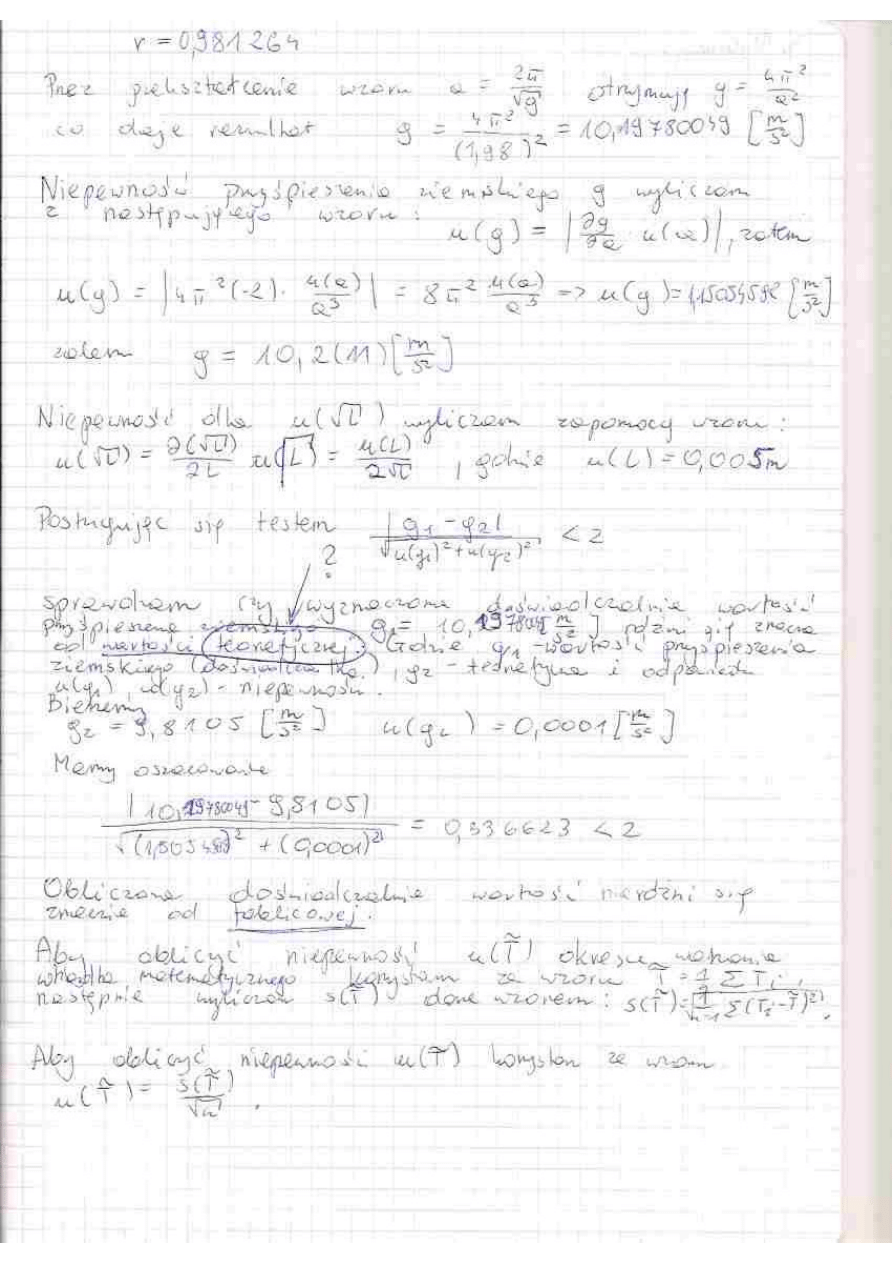 r = 0,981264
Przez przekształcenie wzoru a = 2π/√g otrzymuję g = 4π²/a²
co daje rezultat g = 4π²/(1,98)² = 10,19780049 [m/s²]
Niepewność przyśpieszenia ziemskiego g wyliczam
z następującego wzoru:
u(g) = |∂g/∂a · u(a)|, zatem
u(g) = |4π²(-2) · u(a)/a³| = 8π² u(a)/a³ => u(g)= [m/s²]
zatem g = 10,2(11)[m/s²]
Niepewność dla u(√L) wyliczam zapomocą wzoru:
u(√L) = ∂(√L)/∂L u(L) = u(L)/2√L , gdzie u(L)=0,005m
Posługując się testem |g₁ - g₂|/√u(g₁)²+u(g₂)² < 2
?
sprawdzam czy wyznaczona doświadczalnie wartość
przyśpieszenia ziemskiego g₁= 10,1978049 [m/s²] różni się znacznie
od wartości teoretycznej. Gdzie g₁ - wartość przyśpieszenia
ziemskiego (doświadczalna), g₂ - teoretyczna i odpowiednio
u(g₁), u(g₂) - niepewności.
Bierzemy
g₂ = 9,8105 [m/s²] u(g₂) = 0,0001[m/s²]
Mamy oszacowanie
|10,19780049 - 9,8105|/√()² + (0,0001)² = 0,336623 < 2
Obliczona doświadczalnie wartość nie różni się
znacznie od tablicowej.
Aby obliczyć niepewność u(T̃) okresu wahania
wahadła matematycznego korzystam ze wzoru T̃ = 1 Σ Tᵢ,
następnie wyliczam s(T̃) dane wzorem: s(T̃)=√1/n-1 Σ(Tᵢ-T̃)².
Aby obliczyć niepewność u(T̃) korzystam ze wzoru
u(T̃) = s(T̃)/√n .